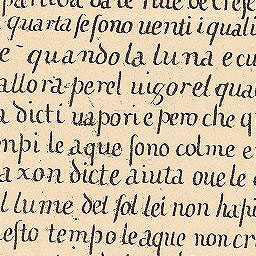 partita da le rive de crese
quarta se sono uenti i quali
e quando la luna e cu
allora perel uigorel qua
a dicti uapori e pero che q
mpi le aque sono colme e
axon dicte aiuta oue le
l lume del sol lei non hapi
uesto tempo le aque non cr